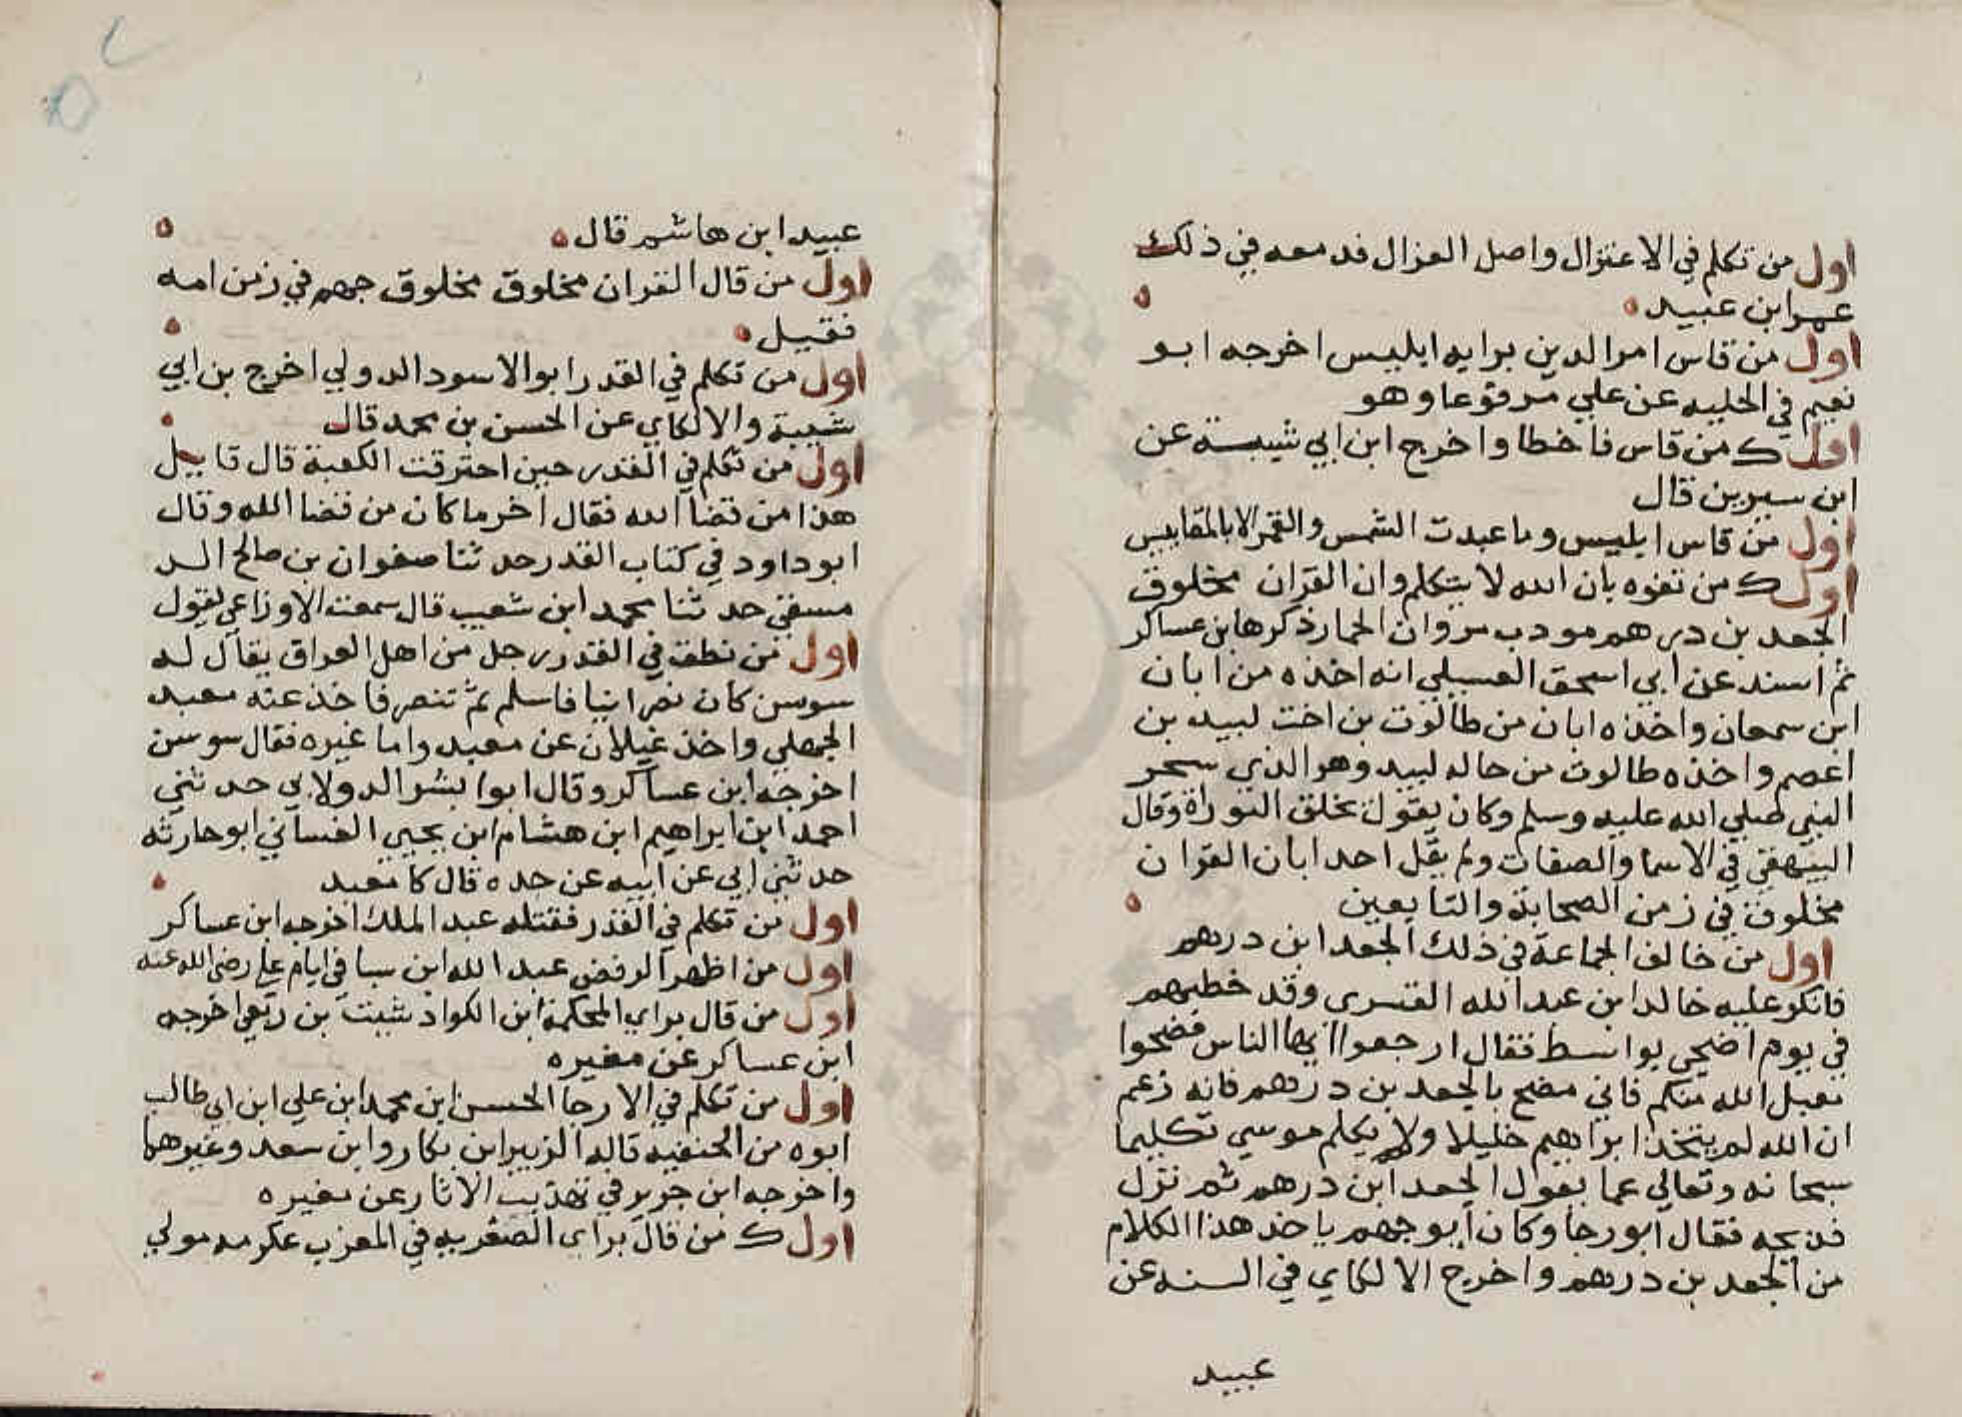 اول من تكلم في الاعتزال واصل الغزال قد معه في ذلك
عمرابن عبيد
اول من قاس امرالدين برايه ابليس اخرجه ابو
نعيم في الحليه عن علي مرفوعا وهو
اول ك من قاس فاخطا واخرج ابن ابي شيبة عن
ابن سيرين قال
اول من قاس ابليس وما عبدت الشمس والقمر الا بالمقاييس
اول ك من تفوه بان الله لا يتكلم وان القران مخلوق
الجعد بن درهم مودب مروان الحمار ذكرها بن عساكر
ثم اسند عن ابي اسحق العسيلي انه اخذه من ابان
ابن سمعان واخذه ابان من طالوت بن اخت لبيد بن
اعصم واخذه طالوت من خاله لبيد وهو الذي سحر
النبي صلي الله عليه وسلم وكان يقول بخلق التوراة وقال
البيهقي في الاسما والصفات ولم يقل احد ابان القران
مخلوق في زمن الصحابة والتابعين
اول من خالف الجماعة في ذلك الجعد ابن درهم
فانكر عليه خالد ابن عبدالله القسري وقد خطبهم
في يوم اضحي بواسط فقال ارجعوا ايها الناس فضحوا
تقبل الله منكم فاني مضح بالجعد بن درهم فانه زعم
ان الله لم يتخذ ابراهيم خليلا ولا يكلم موسي تكليما
سبحانه وتعالي عما يقول الجعد ابن درهم ثم نزل
فذبحه فقال ابو رجا وكان ابو جهم ياخذ هذا الكلام
من الجعد بن درهم واخرج الالكاي في السنه عن
عبيد
عبيد ابن هاشم قال
اول من قال القران مخلوق مخلوق جهم في زمن امه
فقيل
اول من تكلم في القدر ابو الاسود الدولي اخرج بن ابي
شيبة والالكاي عن الحسن بن محمد قال
اول من تكلم في القدر حين احترقت الكعبة قال قايل
هذا من قضا الله فقال اخر ما كان من قضا الله وقال
ابو داود في كتاب القدر حدثنا صفوان بن صالح الد
مسقي حدثنا محمد ابن شعيب قال سمعت الاوزاعي يقول
اول من نطق في القدر رجل من اهل العراق يقال له
سوسن كان نصرانيا فاسلم ثم تنصر فاخذ عنه معبد
الجهلي واخذ غيلان عن معبد واما غيره فقال سوسن
اخرجه ابن عساكر وقال ابوا بشر الدولابي حدثني
احمد ابن ابراهيم ابن هشام ابن يحيي الغساني ابو حارثه
حدثني ابي عن ابيه عن جده قال كا معبد
اول من تكلم في القدر فقتله عبد الملك اخرجه ابن عساكر
اول من اظهر الرفض عبد الله ابن سبا في ايام علي رضي الله عنه
اول من قال براي المحكمة ابن الكواد شبت بن ربعي اخرجه
ابن عساكر عن مغيره
اول من تكلم في الارجا الحسن ابن محمد ابن علي ابن ابي طالب
ابوه من الحنفيه قاله الزبير ابن بكار وابن سعد وغيرهما
واخرجه ابن جرير في تهذيب الاثار عن مغيره
اول ك من قال براي الصفريه في المغرب عكرمه مولي